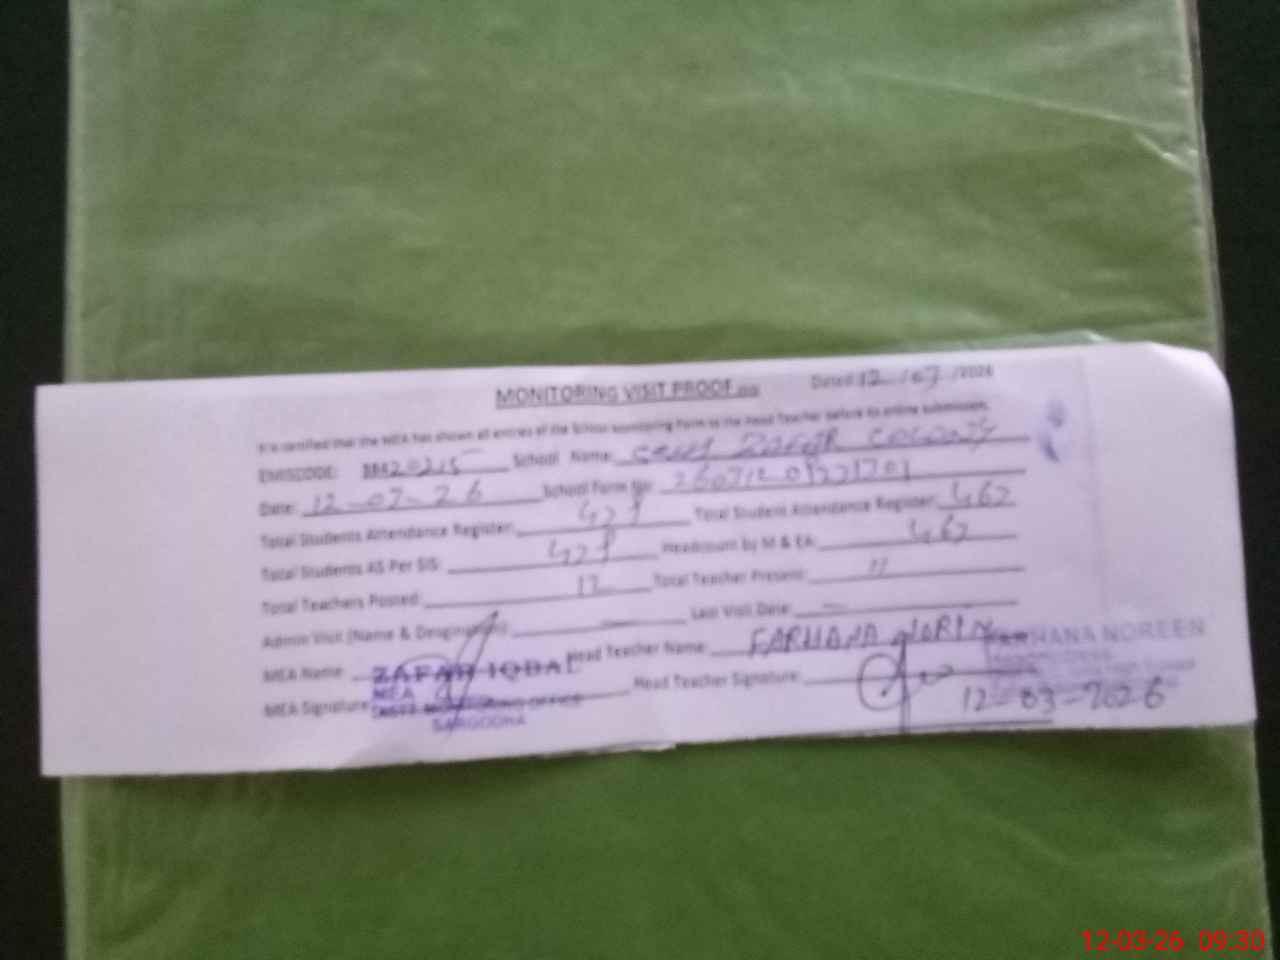 MONITORING VISIT PROOF Dated 12 /03 /2026
It is certified that the MEA has shown all entries of the School Monitoring Form to the Head Teacher before its online submission.
EMISCODE: School Name: ZAFAR COLONY
Date: 12-03-26 School Form No:
Total Students Attendance Register: Total Student Attendance Register: 467
Total Students AS Per SIS: Headcount by M & EA: 467
Total Teachers Posted: 12 Total Teacher Present: 11
Admin Visit (Name & Designation): — Last Visit Date: —
MEA Name: ZAFAR IQBAL Head Teacher Name: FARHANA NORIN
FARHANA NOREEN
MEA Signature: Head Teacher Signature:
MEA
DISTT. MONITORING OFFICE
SARGODHA
12-03-2026
12-03-26 09:30